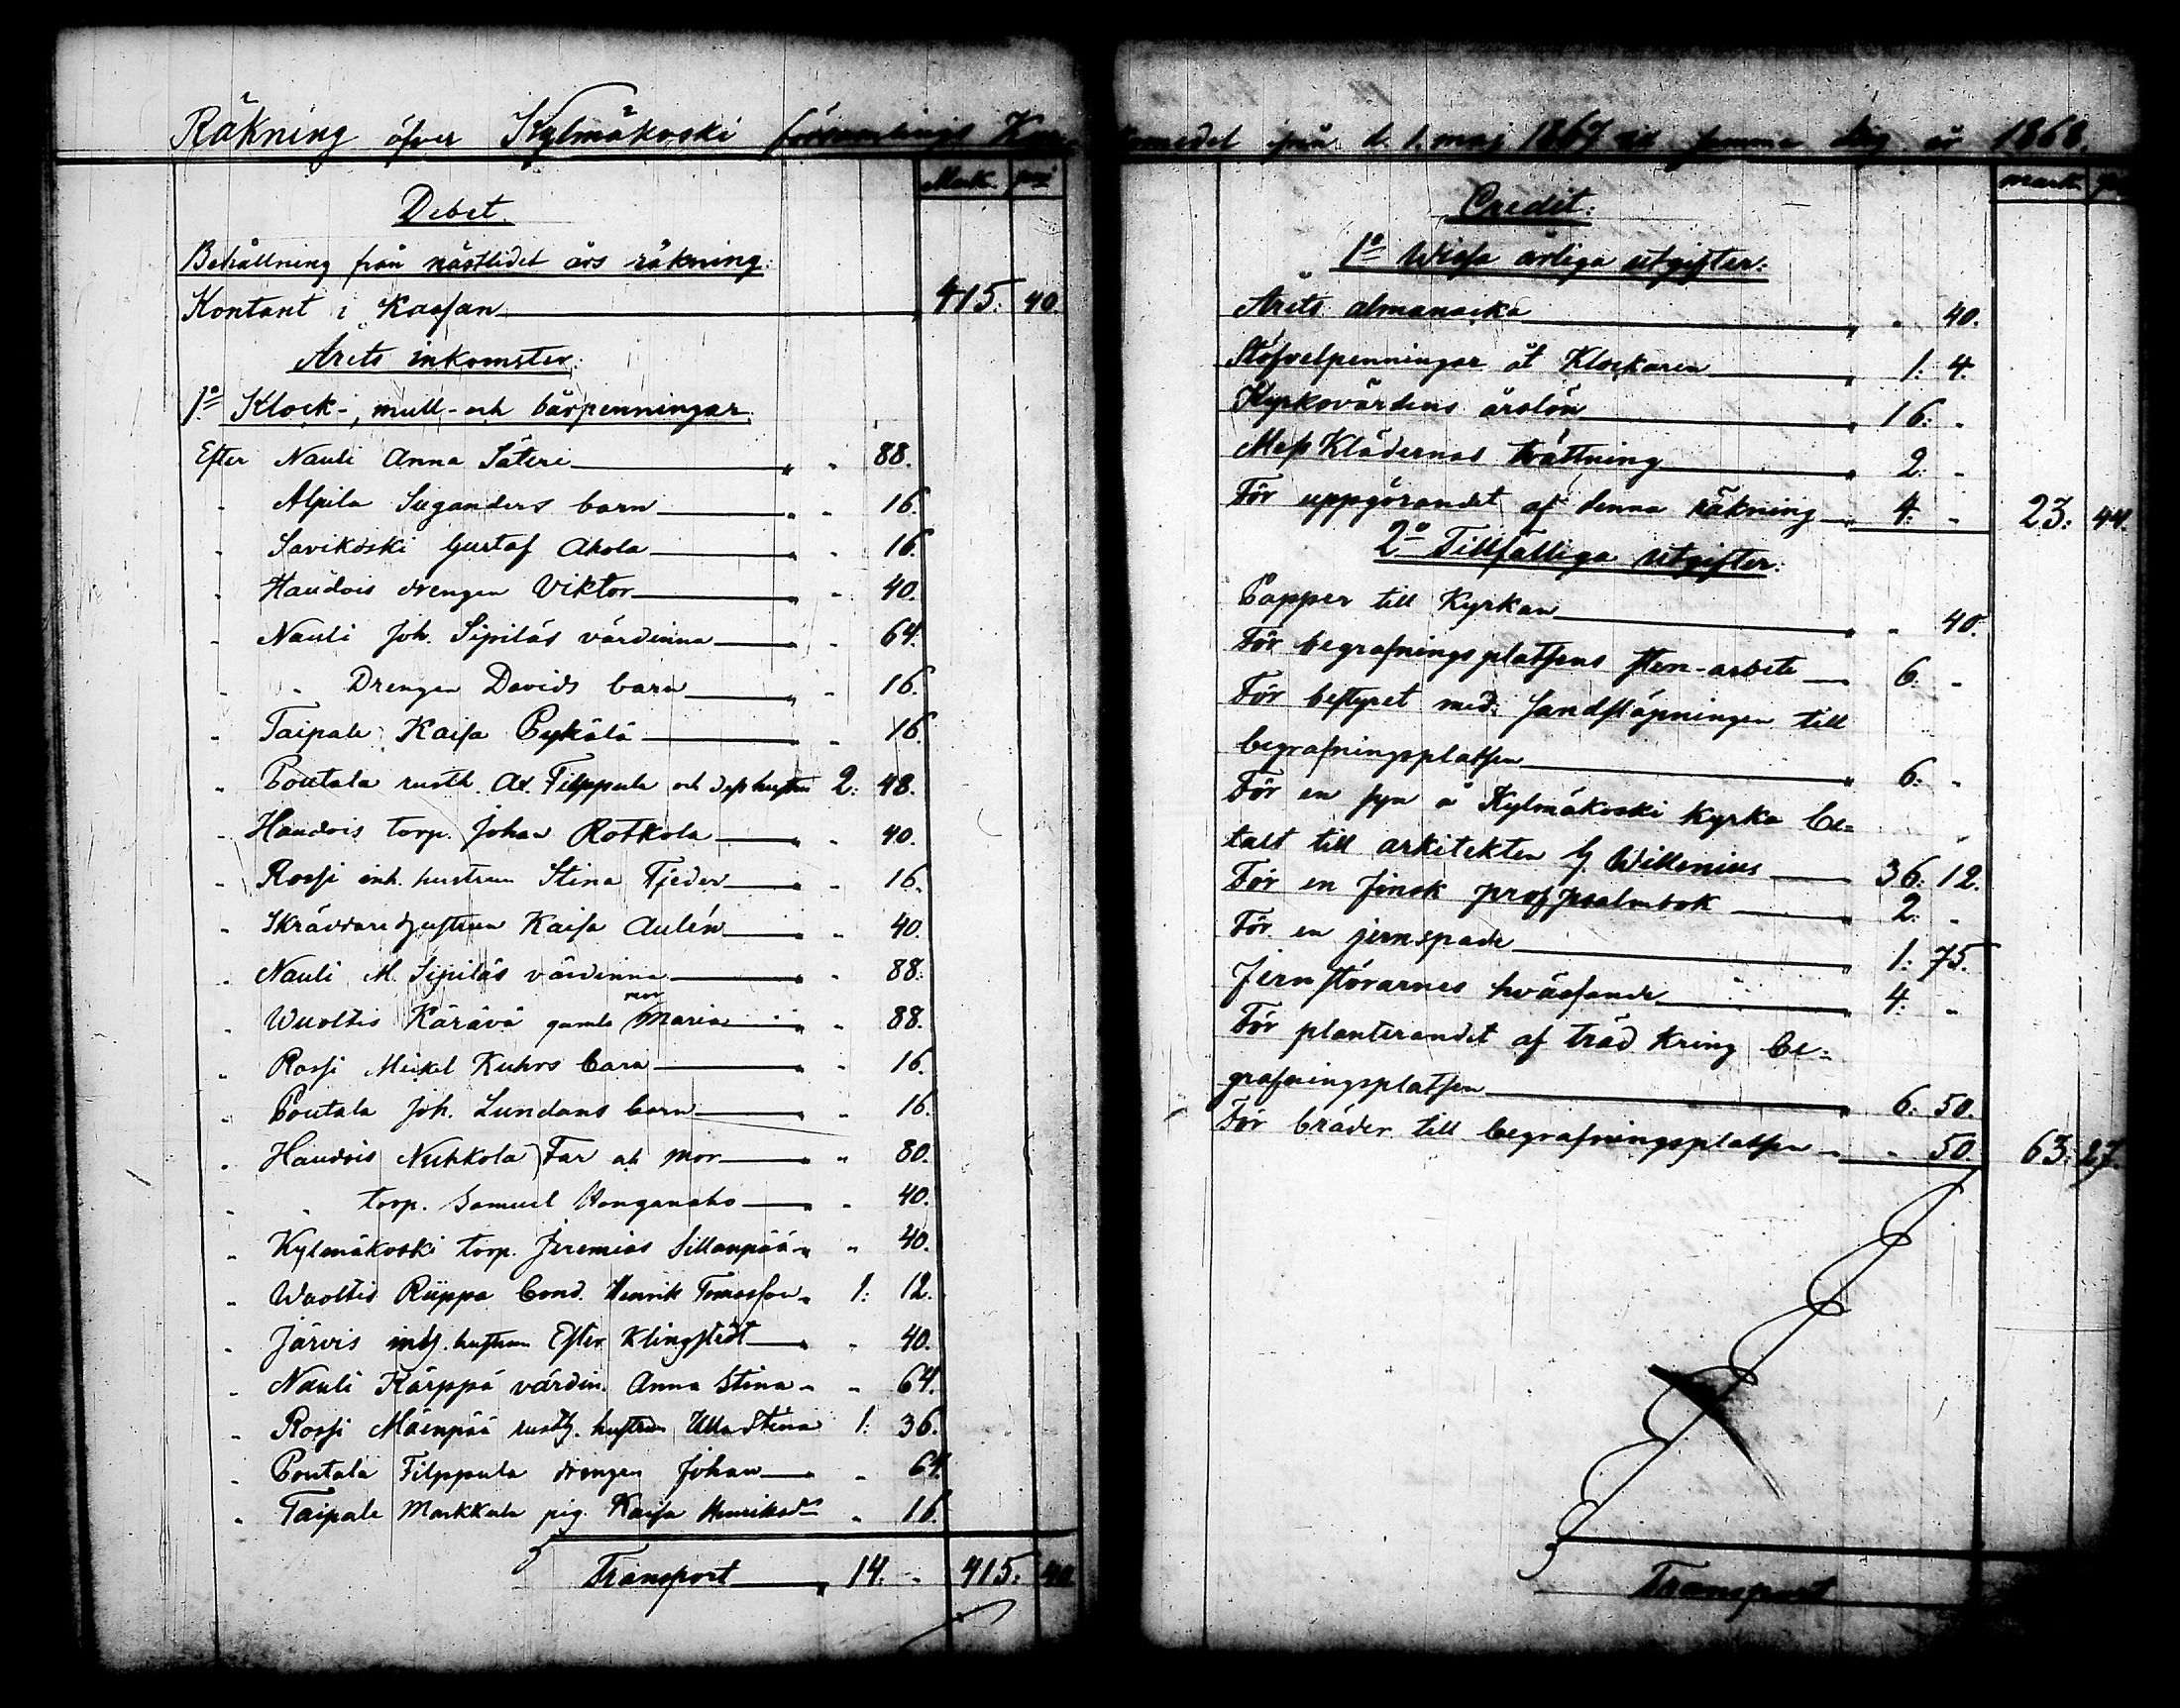 Räkning öfver Kylmäkoski församlings
från d. 1. maj 1867 till samma dag år 1868.
Mark. pni
Debet.
Behållning från nästlidet års räkning:
Kontant i Kassan 415. 40.
Årets inkomster:
1º Klock-, mull- och bårpenningar.
Efter Nauli Anna Säteri " " 88.
" Alpila Suganders barn " " 16.
" Savikoski Gustaf Ahola " " 16.
" Haudois drengen Viktor " " 40.
" Nauli Joh. Sipiläs värdinna " " 64.
" " Drengen Davids barn " " 16.
" Taipale Kaisa Pykälä " " 16.
" Poutala rusth. Ad. Filppula och dess hustru 2: 48.
" Haudois torp. Johan Rotkola " " 40.
" Rossi inh. hustrun Stina Fjeder " " 16.
" Skräddare hustrun Kaisa Aulén " " 40.
" Nauli M. Sipiläs värdinna " " 88.
" Wuoltis Kärävä gamla mor Maria " " 88.
" Rossi Mickel Kuhrs barn " " 16.
" Poutala Joh. Lundans barn " " 16.
" Haudois Nuhkola Far och mor " " 80.
" " torp. Samuel Honganaho " " 40.
" Kylmäkoski torp. Jeremias Sillanpää " " 40.
" Wuoltis Riippa bond. Henrik Tomasson " 1: 12.
" Järvis inh. hustrun Ester Klingstedt " " 40.
" Nauli Kärppä värdin. Anna Stina " " 64.
" Rossi Mäenpää rusth. hustrun Ulla Stina 1: 36.
" Poutala Filppula drengen Johan " " 64.
" Taipale Markkula pig. Kaisa Henriksdr " 16.
Transport " 14. " 415: 40
mark. pni
Credit:
1º Wissa årliga utgifter:
Årets almanacka " " 40.
Stöfvelpenningar åt Klockaren " 1: 4.
Kyrkovärdens årslön " 16: "
Mess Klädernas tvättning " 2: "
För uppgörandet af denna räkning " 4: " 23: 44.
2º Tillfälliga utgifter:
Papper till Kyrkan " " 40.
För begrafningsplatsens sten-arbete 6. "
För bestyret med sandsläpningen till
begrafningsplatsen " 6: "
För en syn å Kylmäkoski Kyrka be=
talt till arkitekten G. Willenius 36: 12.
För en finsk psalmbok " 2: "
För en jernspade " 1: 75.
Jernstörarnes hvässande " 4: "
För planterandet af träd kring be=
grafningsplatsen " 6: 50.
För bräder till begrafningsplatsen " " 50. 63: 27.
Transport